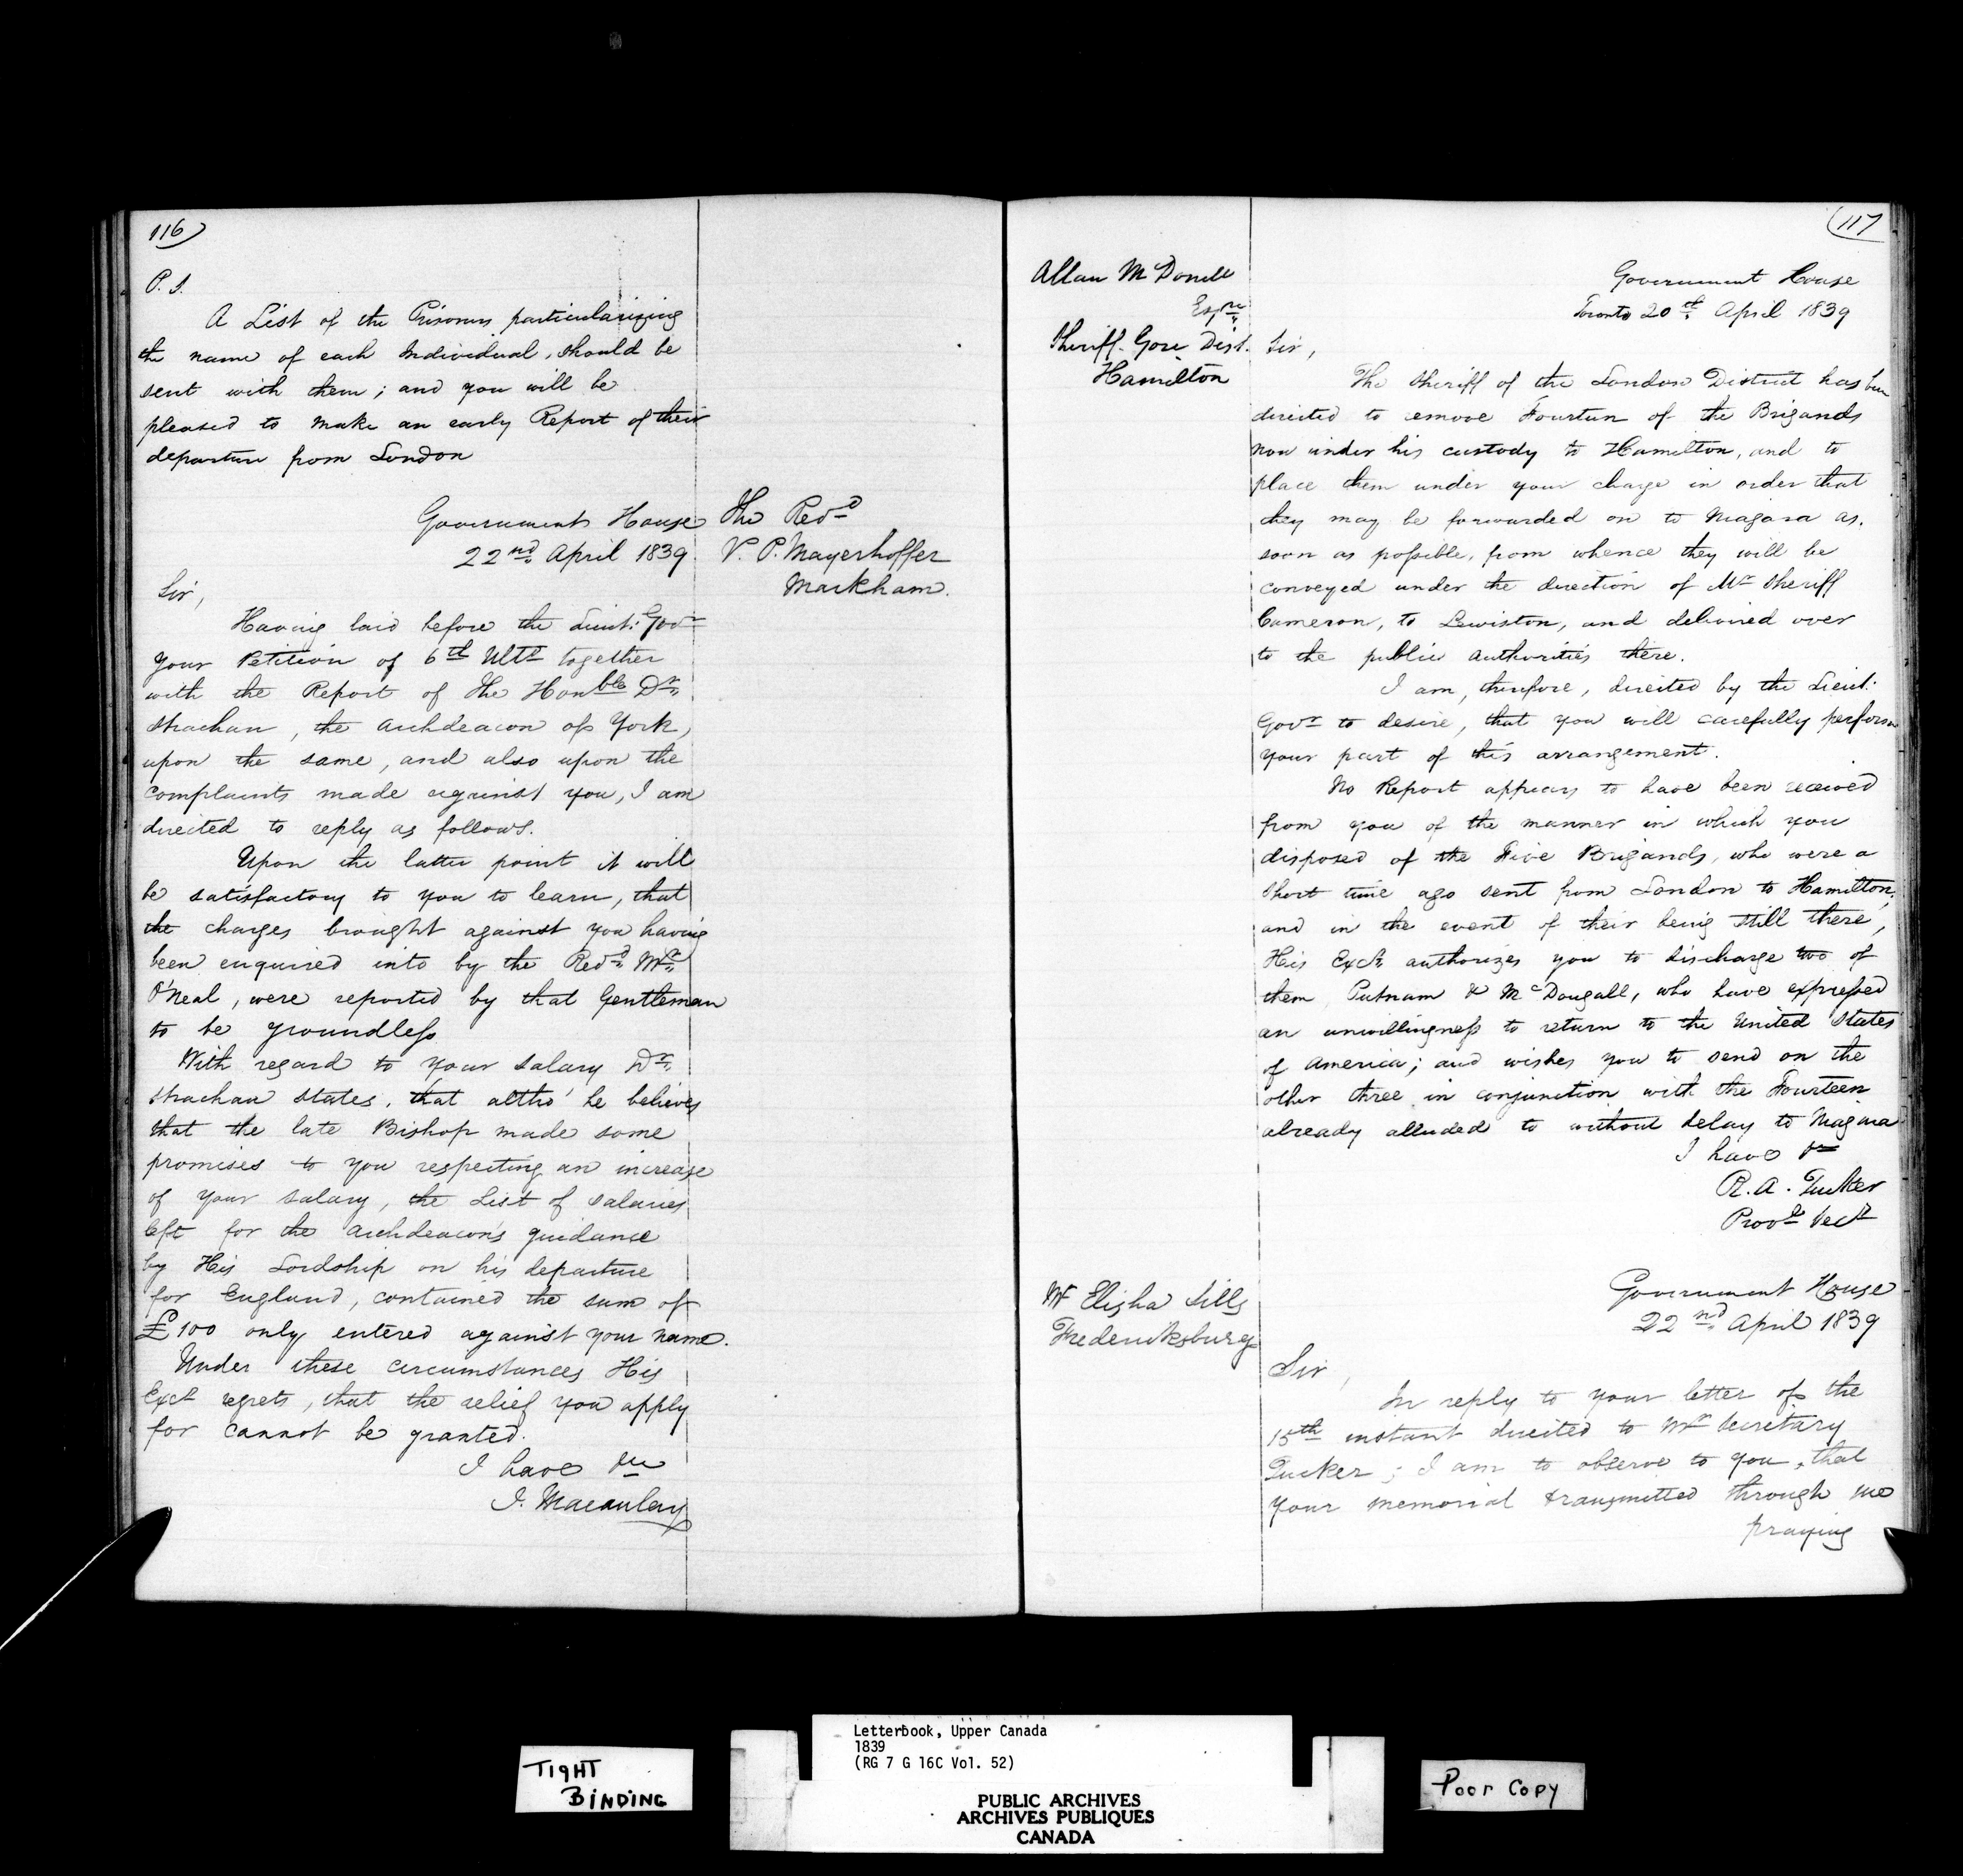 116
P. S.
A List of the Prisoners particularizing
the name of each Individual, should be
sent with them; and you will be
pleased to make an early Report of their
departure from London
Government House
22nd April 1839.
The Revd
V. P. Mayerhoffer
Markham.
Sir,
Having laid before the Lieut: Govr
your Petition of 6th Ulto together
with the Report of the Honble Dr
Strachan, the Archdeacon of York,
upon the same, and also upon the
complaints made against you, I am
directed to reply as follows.
Upon the latter point it will
be satisfactory to you to learn, that
the charges brought against you having
been enquired into by the Revd Mr
O'Neal, were reported by that Gentleman
to be groundless
With regard to your salary Dr
Strachan states, that altho' he believes
that the late Bishop made some
promises to you respecting an increase
of your salary, the List of salaries
left for the Archdeacon's guidance
by His Lordship on his departure
for England, contained the sum of
£100 only entered against your name.
Under these circumstances His
Excy regrets, that the relief you apply
for cannot be granted.
I have &c
J. Macaulay
117
Allan McDonell
Esqre
Sheriff Gore Dist.
Hamilton
Government House
Toronto 20th April 1839
Sir,
The Sheriff of the London District has been
directed to emove Fourteen of the Brigands
now under his custody to Hamilton, and to
place them under your charge in order that
they may be forwarded on to Niagara as
soon as possible, from whence they will be
conveyed under the direction of Mr Sheriff
Cameron, to Lewiston, and delivered over
to the public authorities there.
I am, therefore, directed by the Lieut:
Govr to desire, that you will carefully perform
your part of this arrangement.
No Report appears to have been received
from you of the manner in which you
disposed of the Five Brigands, who were a
short time ago sent from London to Hamilton;
and in the event of their being still there,
His Excy authorizes you to discharge two of
them Putnam & McDougall, who have expressed
an unwillingness to return to the United States
of America; and wishes you to send on the
other three in conjunction with the Fourteen
already alluded to without delay to Niagara
I have &c
R. A. Tucker
Provl Secy
Mr Elisha Sills
Fredericksburg
Government House
22nd April 1839
Sir,
In reply to your letter of the
15th instant directed to Mr Secretary
Tucker; I am to observe to you, that
your memorial transmitted through me
praying
Letterbook, Upper Canada
1839
(RG 7 G 16C Vol. 52)
TIGHT
BINDING
PUBLIC ARCHIVES
ARCHIVES PUBLIQUES
CANADA
Poor Copy